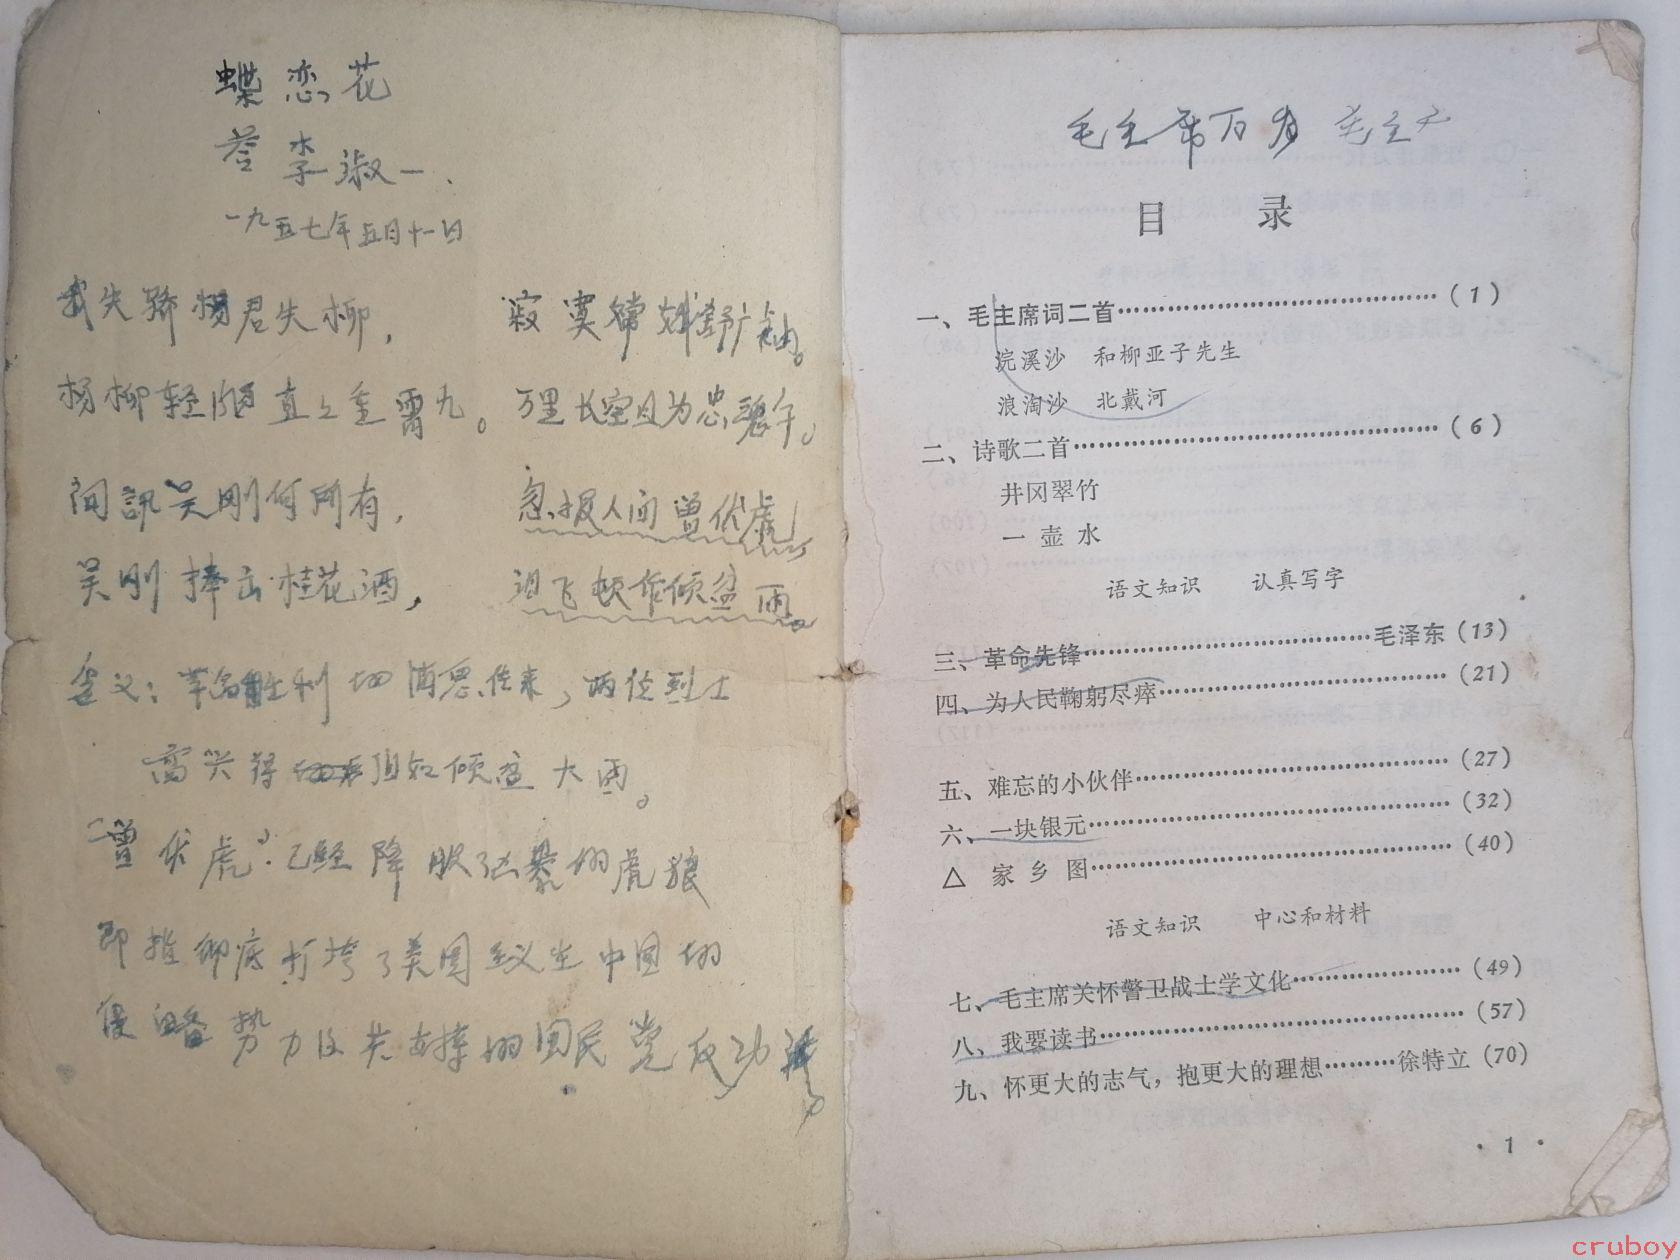 蝶恋花
荅李淑一.
一九五七年五月十一日
我失骄杨君失柳,
杨柳轻飏直上重霄九。
闻訊吴刚何所有,
吴刚捧出桂花酒,
寂寞嫦娥舒广袖。
万里长空且为忠魂午。
急报人间曾伏虎
泪飞顿作倾盆雨。
含义:革命胜利的消息传来,两位烈士
高兴得泪如倾盆大雨。
"曾伏虎".已经降服了凶暴的虎狼
即指彻底打垮了美国主义在中国的
侵略势力及其支撑的国民党反动派
毛主席万岁 毛主
目 录
一、毛主席词二首……(1)
浣溪沙 和柳亚子先生
浪淘沙 北戴河
二、诗歌二首……(6)
井冈翠竹
一壶水
语文知识 认真写字
三、革命先锋……毛泽东(13)
四、为人民鞠躬尽瘁……(21)
五、难忘的小伙伴……(27)
六、一块银元……(32)
△ 家乡图……(40)
语文知识 中心和材料
七、毛主席关怀警卫战士学文化……(49)
八、我要读书……(57)
九、怀更大的志气，抱更大的理想……徐特立(70)
· 1 ·
cruboy